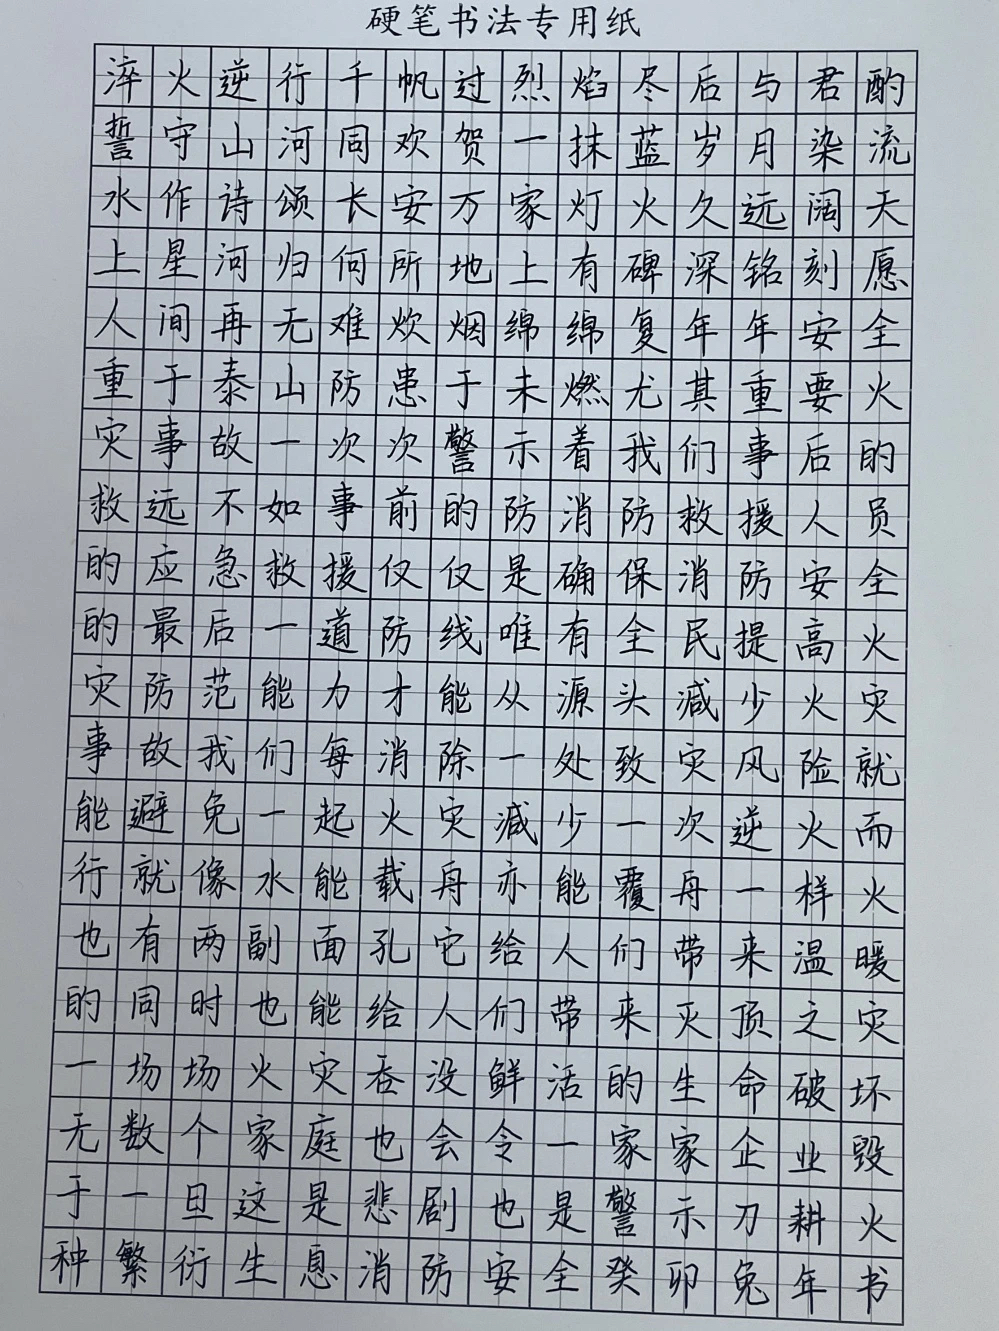 硬笔书法专用纸
淬火逆行千帆过烈焰尽后与君酌
誓守山河同欢贺一抹蓝岁月染流
水作诗颂长安万家灯火久远阔天
上星河归何所地上有碑深铭刻愿
人间再无难炊烟绵绵复年年安全
重于泰山防患于未燃尤其重要火
灾事故一次次警示着我们事后的
救远不如事前的防消防救援人员
的应急救援仅仅是确保消防安全
的最后一道防线唯有全民提高火
灾防范能力才能从源头减少火灾
事故我们每消除一处致灾风险就
能避免一起火灾减少一次逆火而
行就像水能载舟亦能覆舟一样火
也有两副面孔它给人们带来温暖
的同时也能给人们带来灭顶之灾
一场场火灾吞没鲜活的生命破坏
无数个家庭也会令一家家企业毁
于一旦这是悲剧也是警示刀耕火
种繁衍生息消防安全癸卯兔年书